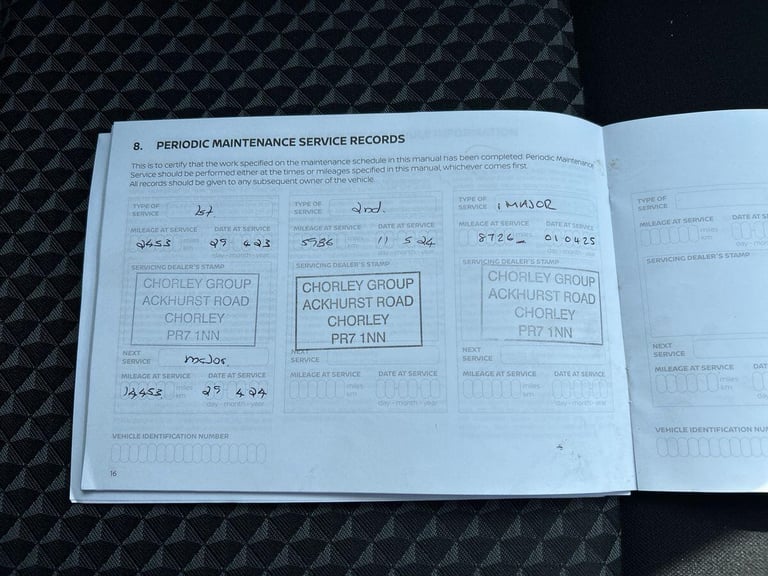 8. PERIODIC MAINTENANCE SERVICE RECORDS
This is to certify that the work specified on the maintenance schedule in this manual has been completed. Periodic Maintenance
Service should be performed either at the times or mileages specified in this manual, whichever comes first.
All records should be given to any subsequent owner of the vehicle.
TYPE OF SERVICE 1st
MILEAGE AT SERVICE DATE AT SERVICE
2453 miles km 29 4 23
day - month - year
SERVICING DEALER'S STAMP
CHORLEY GROUP
ACKHURST ROAD
CHORLEY
PR7 1NN
NEXT SERVICE major
MILEAGE AT SERVICE DATE AT SERVICE
12453 miles km 29 4 24
day - month - year
TYPE OF SERVICE 2nd.
MILEAGE AT SERVICE DATE AT SERVICE
5986 miles km 11 5 24
day - month - year
SERVICING DEALER'S STAMP
CHORLEY GROUP
ACKHURST ROAD
CHORLEY
PR7 1NN
NEXT SERVICE
MILEAGE AT SERVICE DATE AT SERVICE
miles km
day - month - year
TYPE OF SERVICE MAJOR
MILEAGE AT SERVICE DATE AT SERVICE
8726 miles 01 04 25
SERVICING DEALER'S STAMP
CHORLEY GROUP
ACKHURST ROAD
CHORLEY
PR7 1NN
NEXT SERVICE
MILEAGE AT SERVICE DATE AT SERVICE
miles km
day - month - year
VEHICLE IDENTIFICATION NUMBER
16
TYPE OF SERVICE
MILEAGE AT SERVICE DATE AT S
miles km
day - mon
SERVICING DEALER'S STAMP
NEXT SERVICE
MILEAGE AT SERVICE DAT
miles km
day
VEHICLE IDENTIFICATION NU